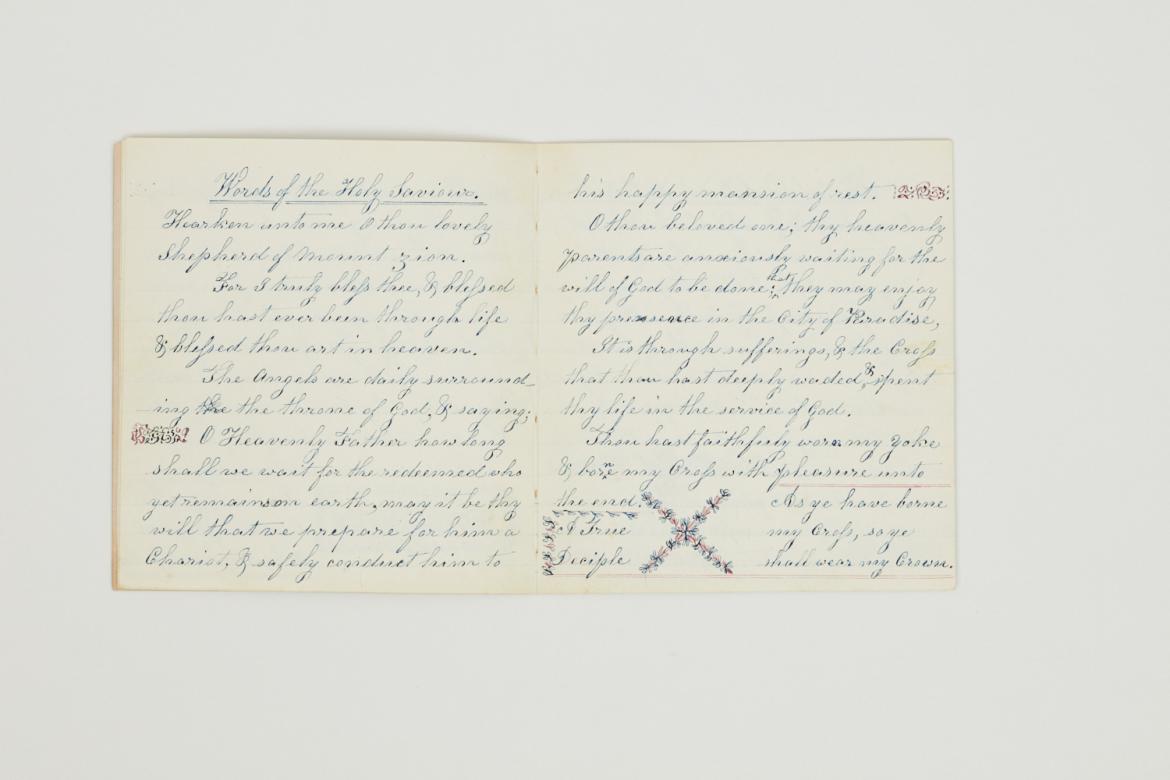 Words of the Holy Saviour.
Harken unto me O thou lovely
Shepherd of Mount zion.
For I truly bless thee, & blessed
thou hast ever been through life
& blessed thou art in heaven.
The Angels are daily surround-
ing the the throne of God, & saying;
O Heavenly Father how long
shall we wait for the redeemed who
yet remains on earth, may it be thy
will that we prepare for him a
Chariot, & safely conduct him to
his happy mansion of rest.
O thou beloved one; thy heavenly
parents are anxiously waiting for the
will of God to be done; that they may enjoy
thy pressence in the City of Paradise,
It is through sufferings, & the Cross
that thou hast deeply waded, & spent
thy life in the service of God.
Thou hast faithfuly worn my yoke
& borne my Cross with pleasure unto
the end.
A True
Deciple
As ye have borne
my Cross, so ye
shall wear my Crown.